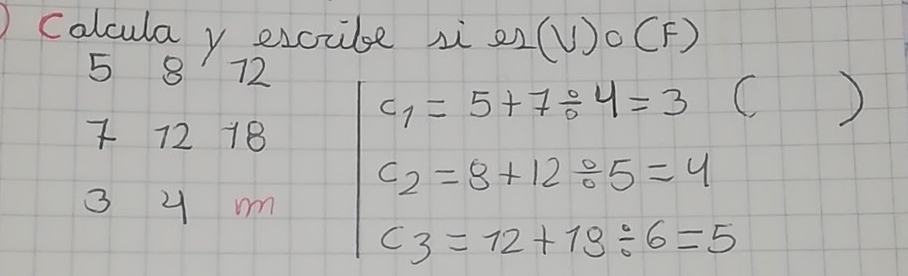 ) Calcula y escribe si es (V) o (F)
5 8 12
7 12 18
3 4 m
C1 = 5+7÷4=3 ( )
C2 = 8+12÷5=4
C3 = 12+18÷6=5